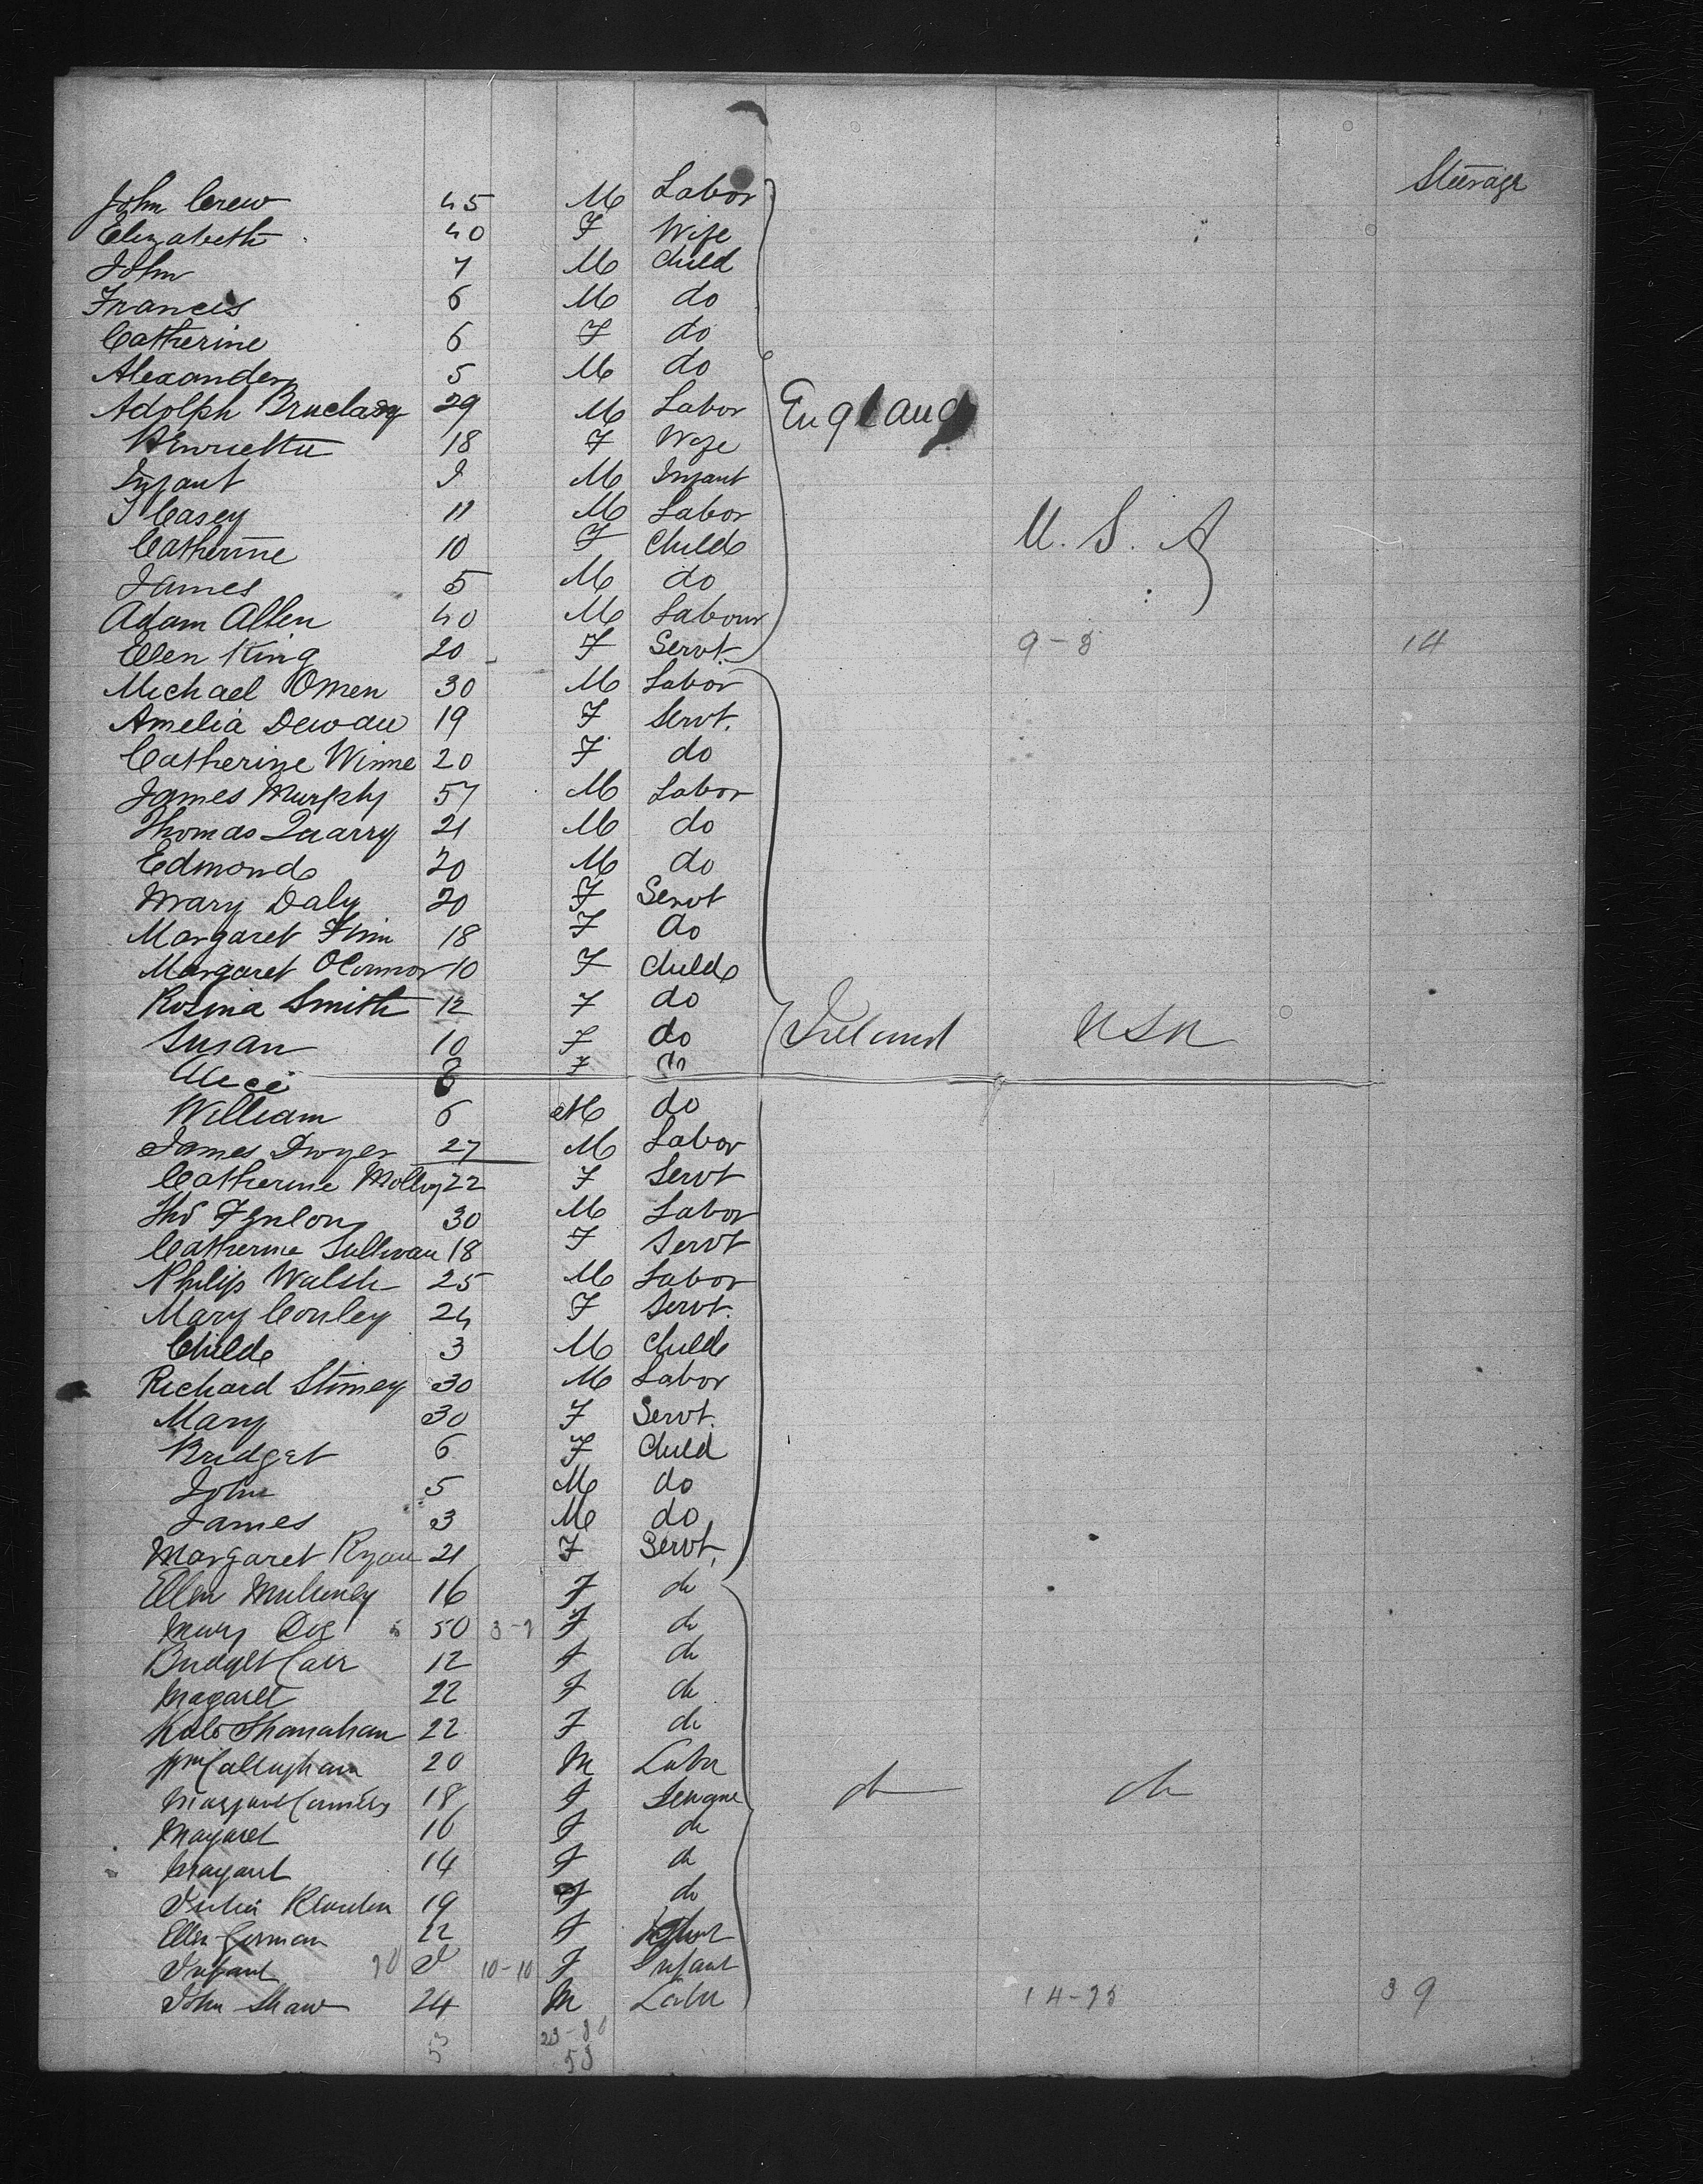 Steerage
John Crew 45 M Labor
Elizabeth 40 F Wife
John 7 M Child
Francis 6 M do
Catherine 6 F do
Alexander 5 M do
Adolph 29 M Labor England
Henrietta 18 F Wife
Infant M Infant
J Casey 11 M Labor
Catherine 10 F Child U. S. A
James 5 M do
Adam Allen 40 M Labour
Ellen King 20 F Servt. 14
Michael Omen 30 M Labor
Amelia 19 F Servt.
Catherine Winne 20 F do
James Murphy 57 M Labor
Thomas Quarry 21 M do
Edmond 20 M do
Mary Daly 20 F Servt
Margaret Finn 18 F do
Margaret OConnor 10 F Child
Rosina Smith 12 F do
Susan 10 F do Ireland USA
Alice 8 F do
William 6 M do
James Dwyer 27 M Labor
Catherine Molloy 22 F Servt
Thos Fenlon 30 M Labor
Catherine Sullivan 18 F Servt
Philip Walsh 25 M Labor
Mary Conley 24 F Servt.
Child 3 M Child
Richard 30 M Labor
Mary 30 F Servt.
Bridget 6 F Child
John 5 M do
James 3 M do
Margaret Ryan 21 F Servt.
Ellen 16 F do
Mary 50 F do
Bridget 12 F do
Magaret 22 F do
Kate Shanahan 22 F do
Wm Callaghan 20 M Labor
Margaret 18 F do do
Magaret 16 F do
Magaret 14 F do
Julia 19 F do
Ellen Gorman 22 F
Infant 10-10 F Infant
John Shaw 24 M Labor 39
53